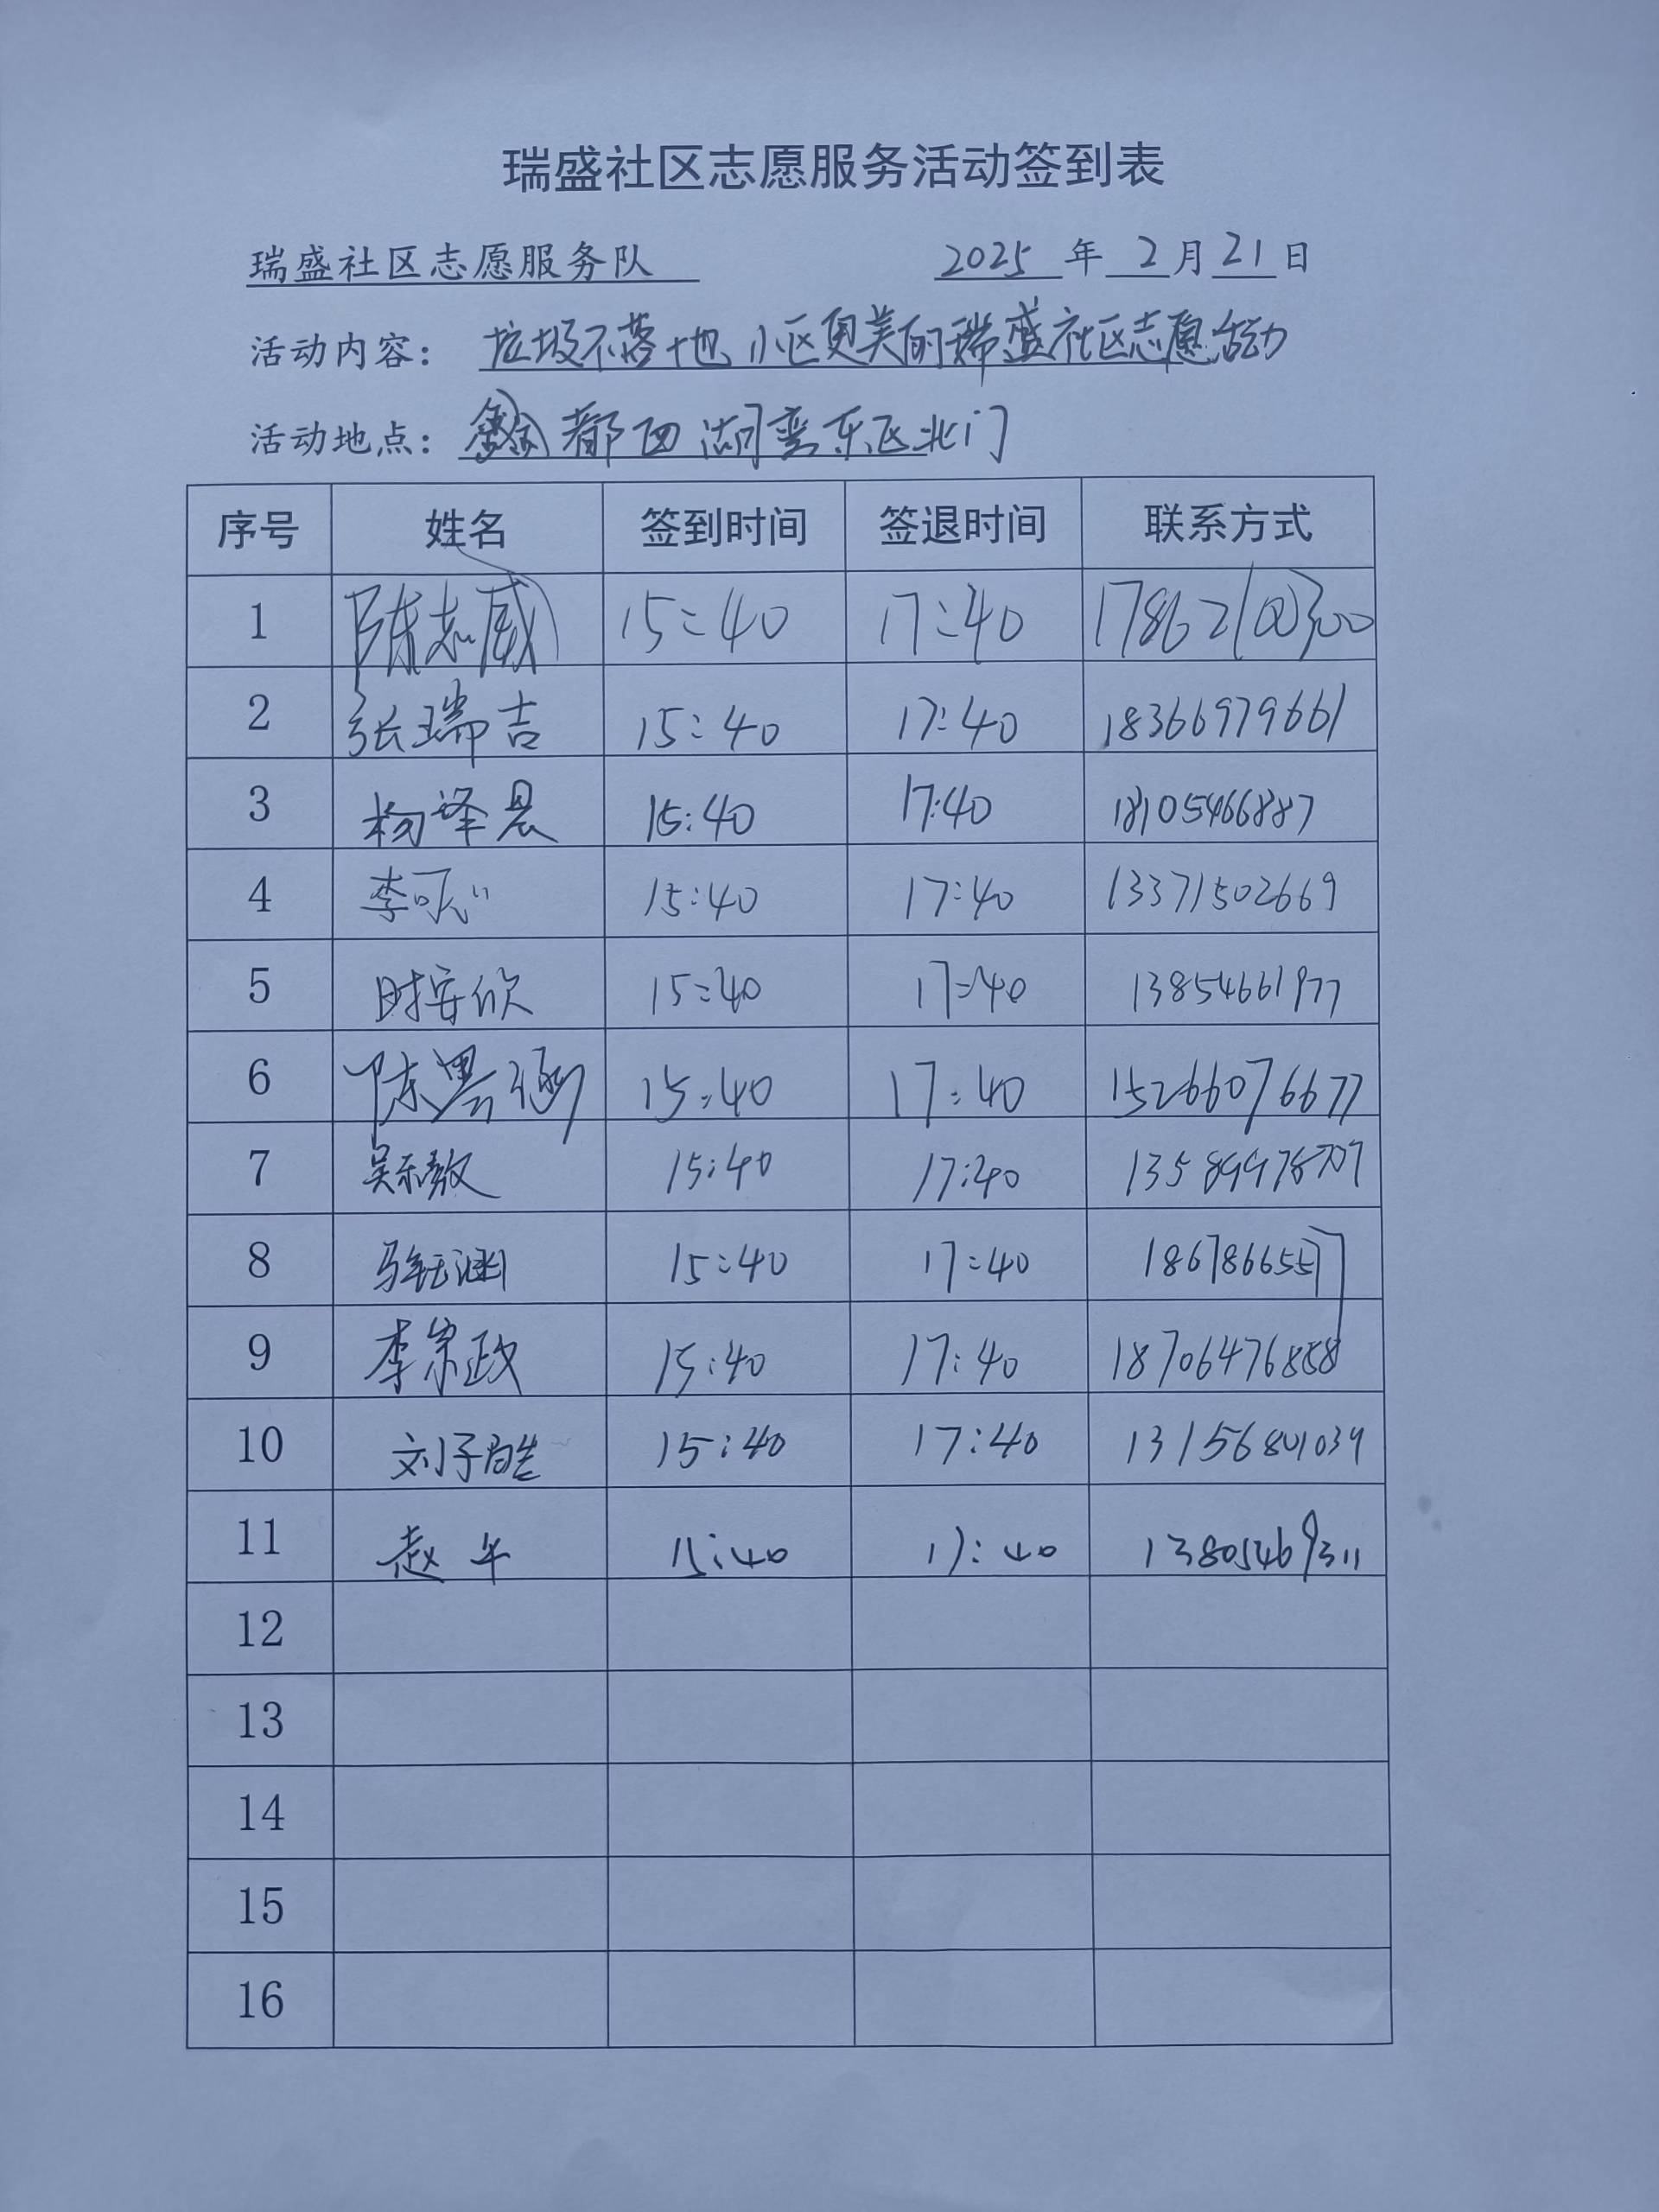 瑞盛社区志愿服务活动签到表
瑞盛社区志愿服务队 2025 年 2 月 21 日
活动内容: 垃圾不落地、小区更美丽瑞盛社区志愿活动
活动地点: 鑫都西湖湾东区北门
序号 姓名 签到时间 签退时间 联系方式
1 陈志威 15:40 17:40
2 张瑞吉 15:40 17:40 18366979661
3 杨泽晨 15:40 17:40 18105466887
4 李可心 15:40 17:40 13371502669
5 时安欣 15:40 17:40 13854661977
6 陈墨涵 15:40 17:40 15266076677
7 吴东璈 15:40 17:40
8 马钰涵 15:40 17:40 18678665577
9 李宗政 15:40 17:40 18706476858
10 刘子皓 15:40 17:40 13156801039
11 赵午 15:40 17:40 13805469311
12
13
14
15
16